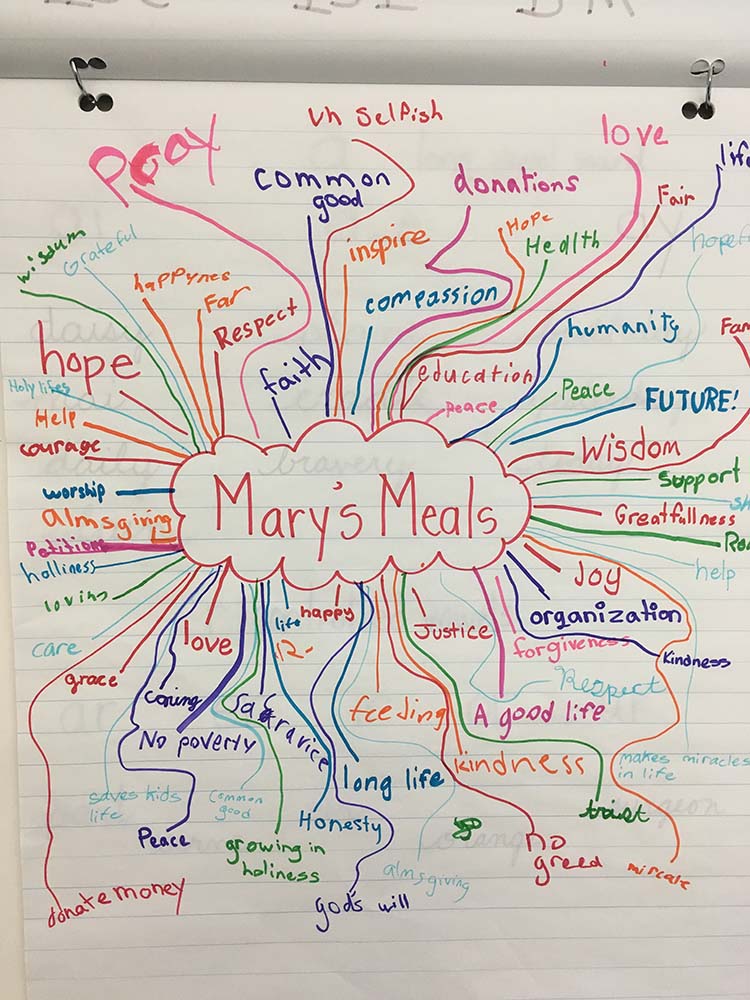 un selfish
pray
love
common
good
donations
life
Fair
wisdum
Grateful
Hope
Health
inspire
hopef
happynes
Far
Respect
compassion
humanity
Fa
hope
faith
education
Peace
FUTURE!
peace
Holy lifes
Help
courage
Wisdom
worship
support
almsgiving
Greatfullness
Mary's Meals
Petitions
holliness
help
Joy
loving
life
happy
organization
love
Justice
forgiveness
care
12-
Kindness
grace
caring
Respect
feeding
A good life
No poverty
long life
kindness
makes miracles
in life
saves kids
life
common
good
Honesty
trust
Peace
growing in
holiness
no
greed
almsgiving
mircale
donate money
god's will